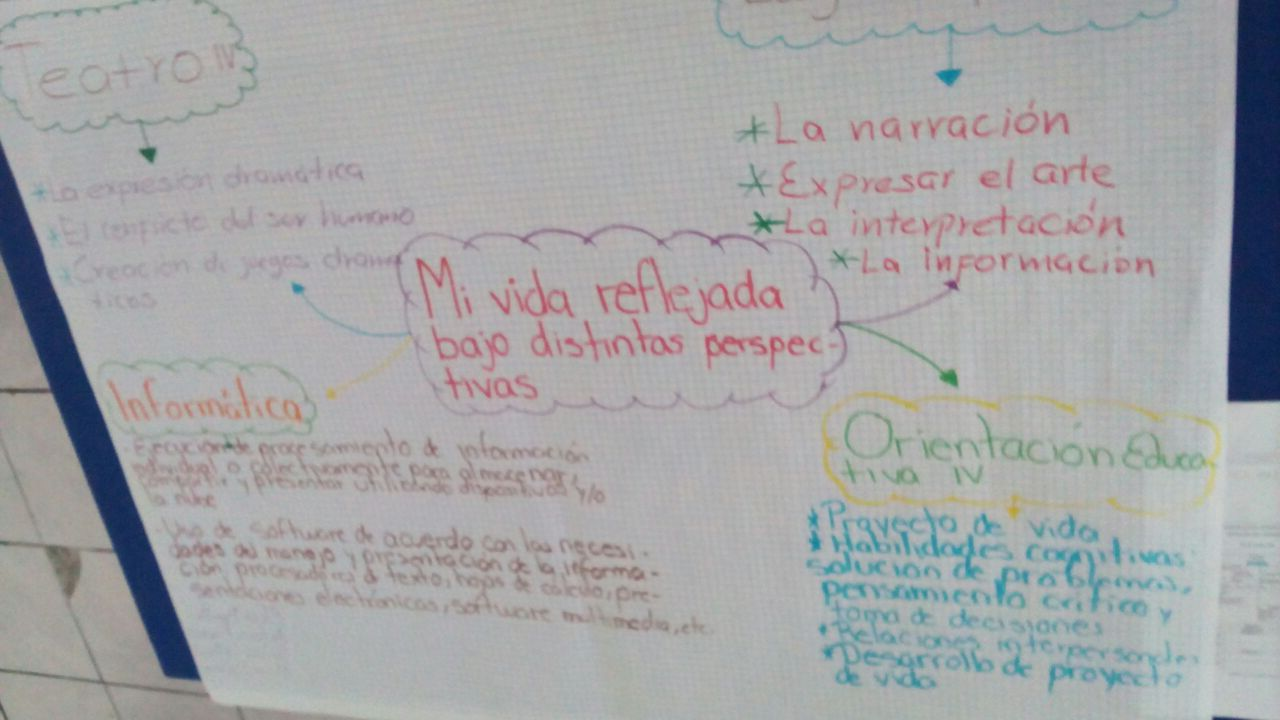 Teatro IV
*La expresión dramática
*El conflicto del ser humano
*Creación de juegos drama
ticos
*La narración
*Expresar el arte
*La interpretación
*La información
Mi vida reflejada
bajo distintas perspec-
tivas
Informática
Ejecución de procesamiento de información
individual o colectivamente para almacenar,
compartir y presentar utilizando dispositivos y/o
la nube
Uso de software de acuerdo con las necesi-
dades del manejo y presentación de la informa-
ción procesadores de texto, hojas de cálculo, pre-
sentaciones electrónicas, software multimedia, etc.
Orientación Educa
tiva IV
*Proyecto de vida
*Habilidades cognitivas:
solución de problemas,
pensamiento crítico y
toma de decisiones
*Relaciones interpersonales
*Desarrollo de proyecto
de vida